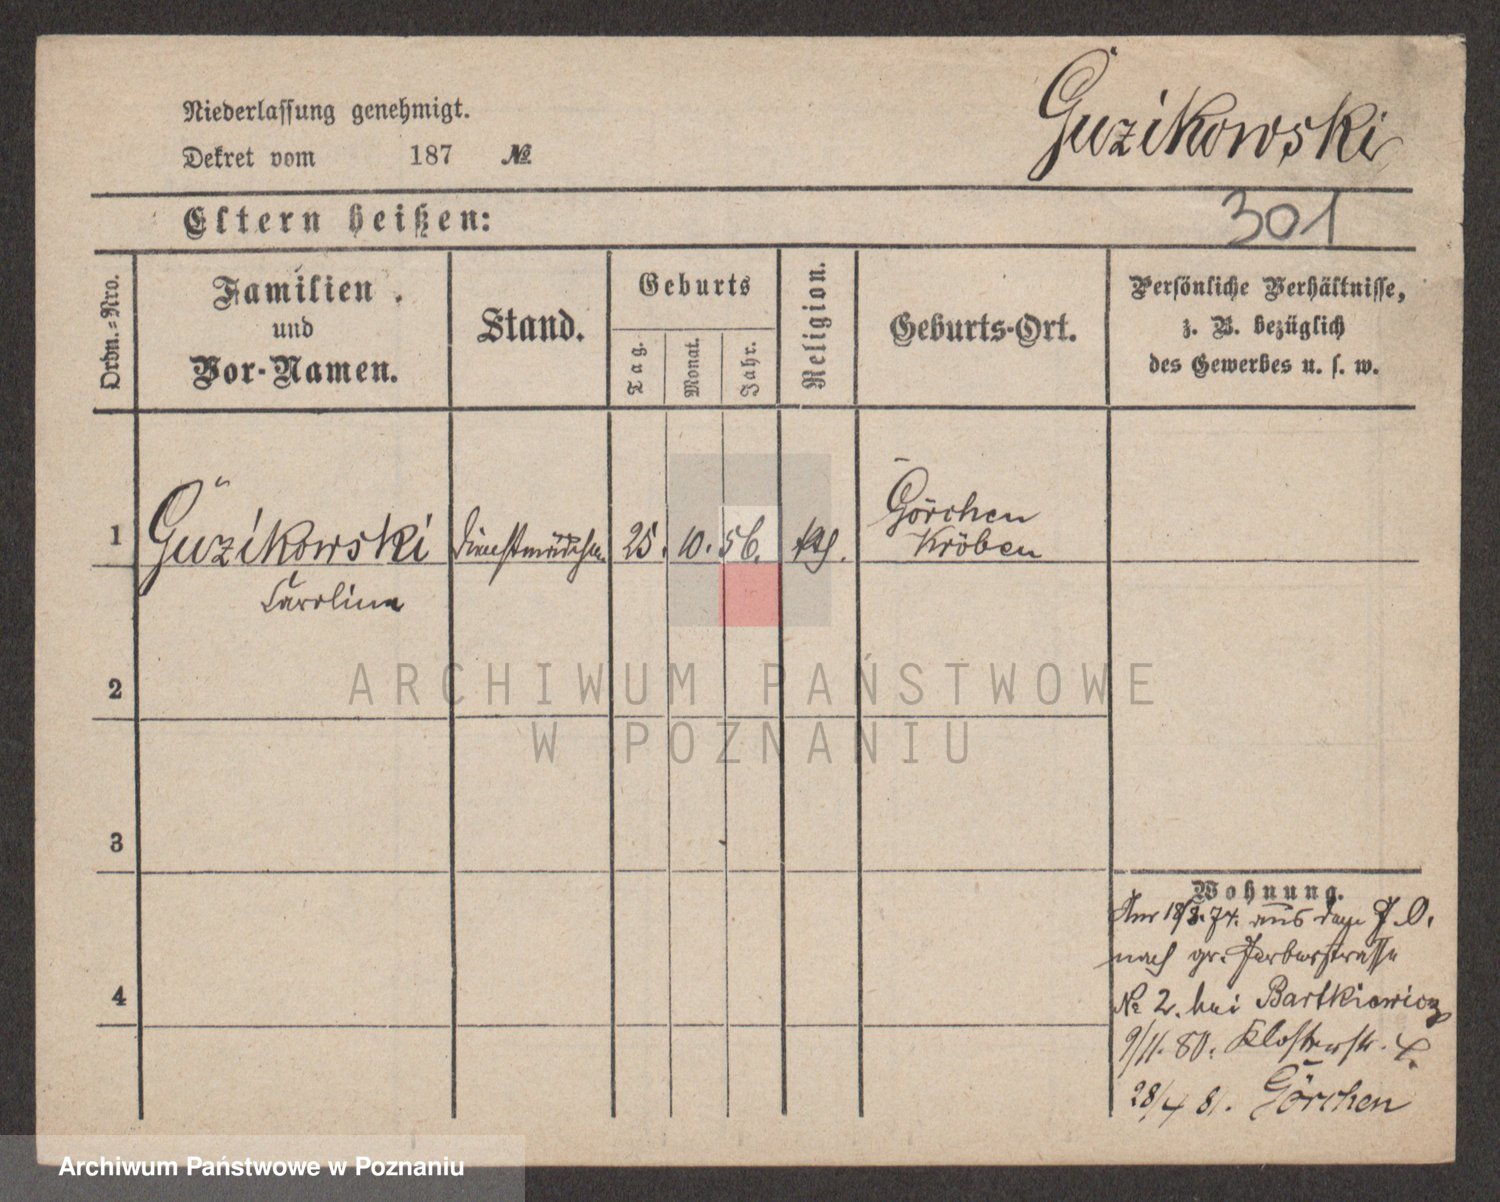 Niederlassung genehmigt.
Dekret vom 187 №
Guzikowski
Eltern heißen:
301
Ordn.=Nro.
Familien
und
Vor-Namen.
Stand.
Geburts
Tag.
Monat.
Jahr.
Religion.
Geburts-Ort.
Persönliche Verhältnisse,
z. B. bezüglich
des Gewerbes u. s. w.
1
Guzikowski
Carolina
Dienstmädchen
25.
10.
56.
kth.
Görchen
Kröben
2
3
4
Wohnung.
18/8. 74. aus
nach gr. Gerberstrasse
№ 2. bei Bartkiewicz
9/11. 80. Klosterstr.
28/4 81. Görchen
ARCHIWUM PAŃSTWOWE
W POZNANIU
Archiwum Państwowe w Poznaniu